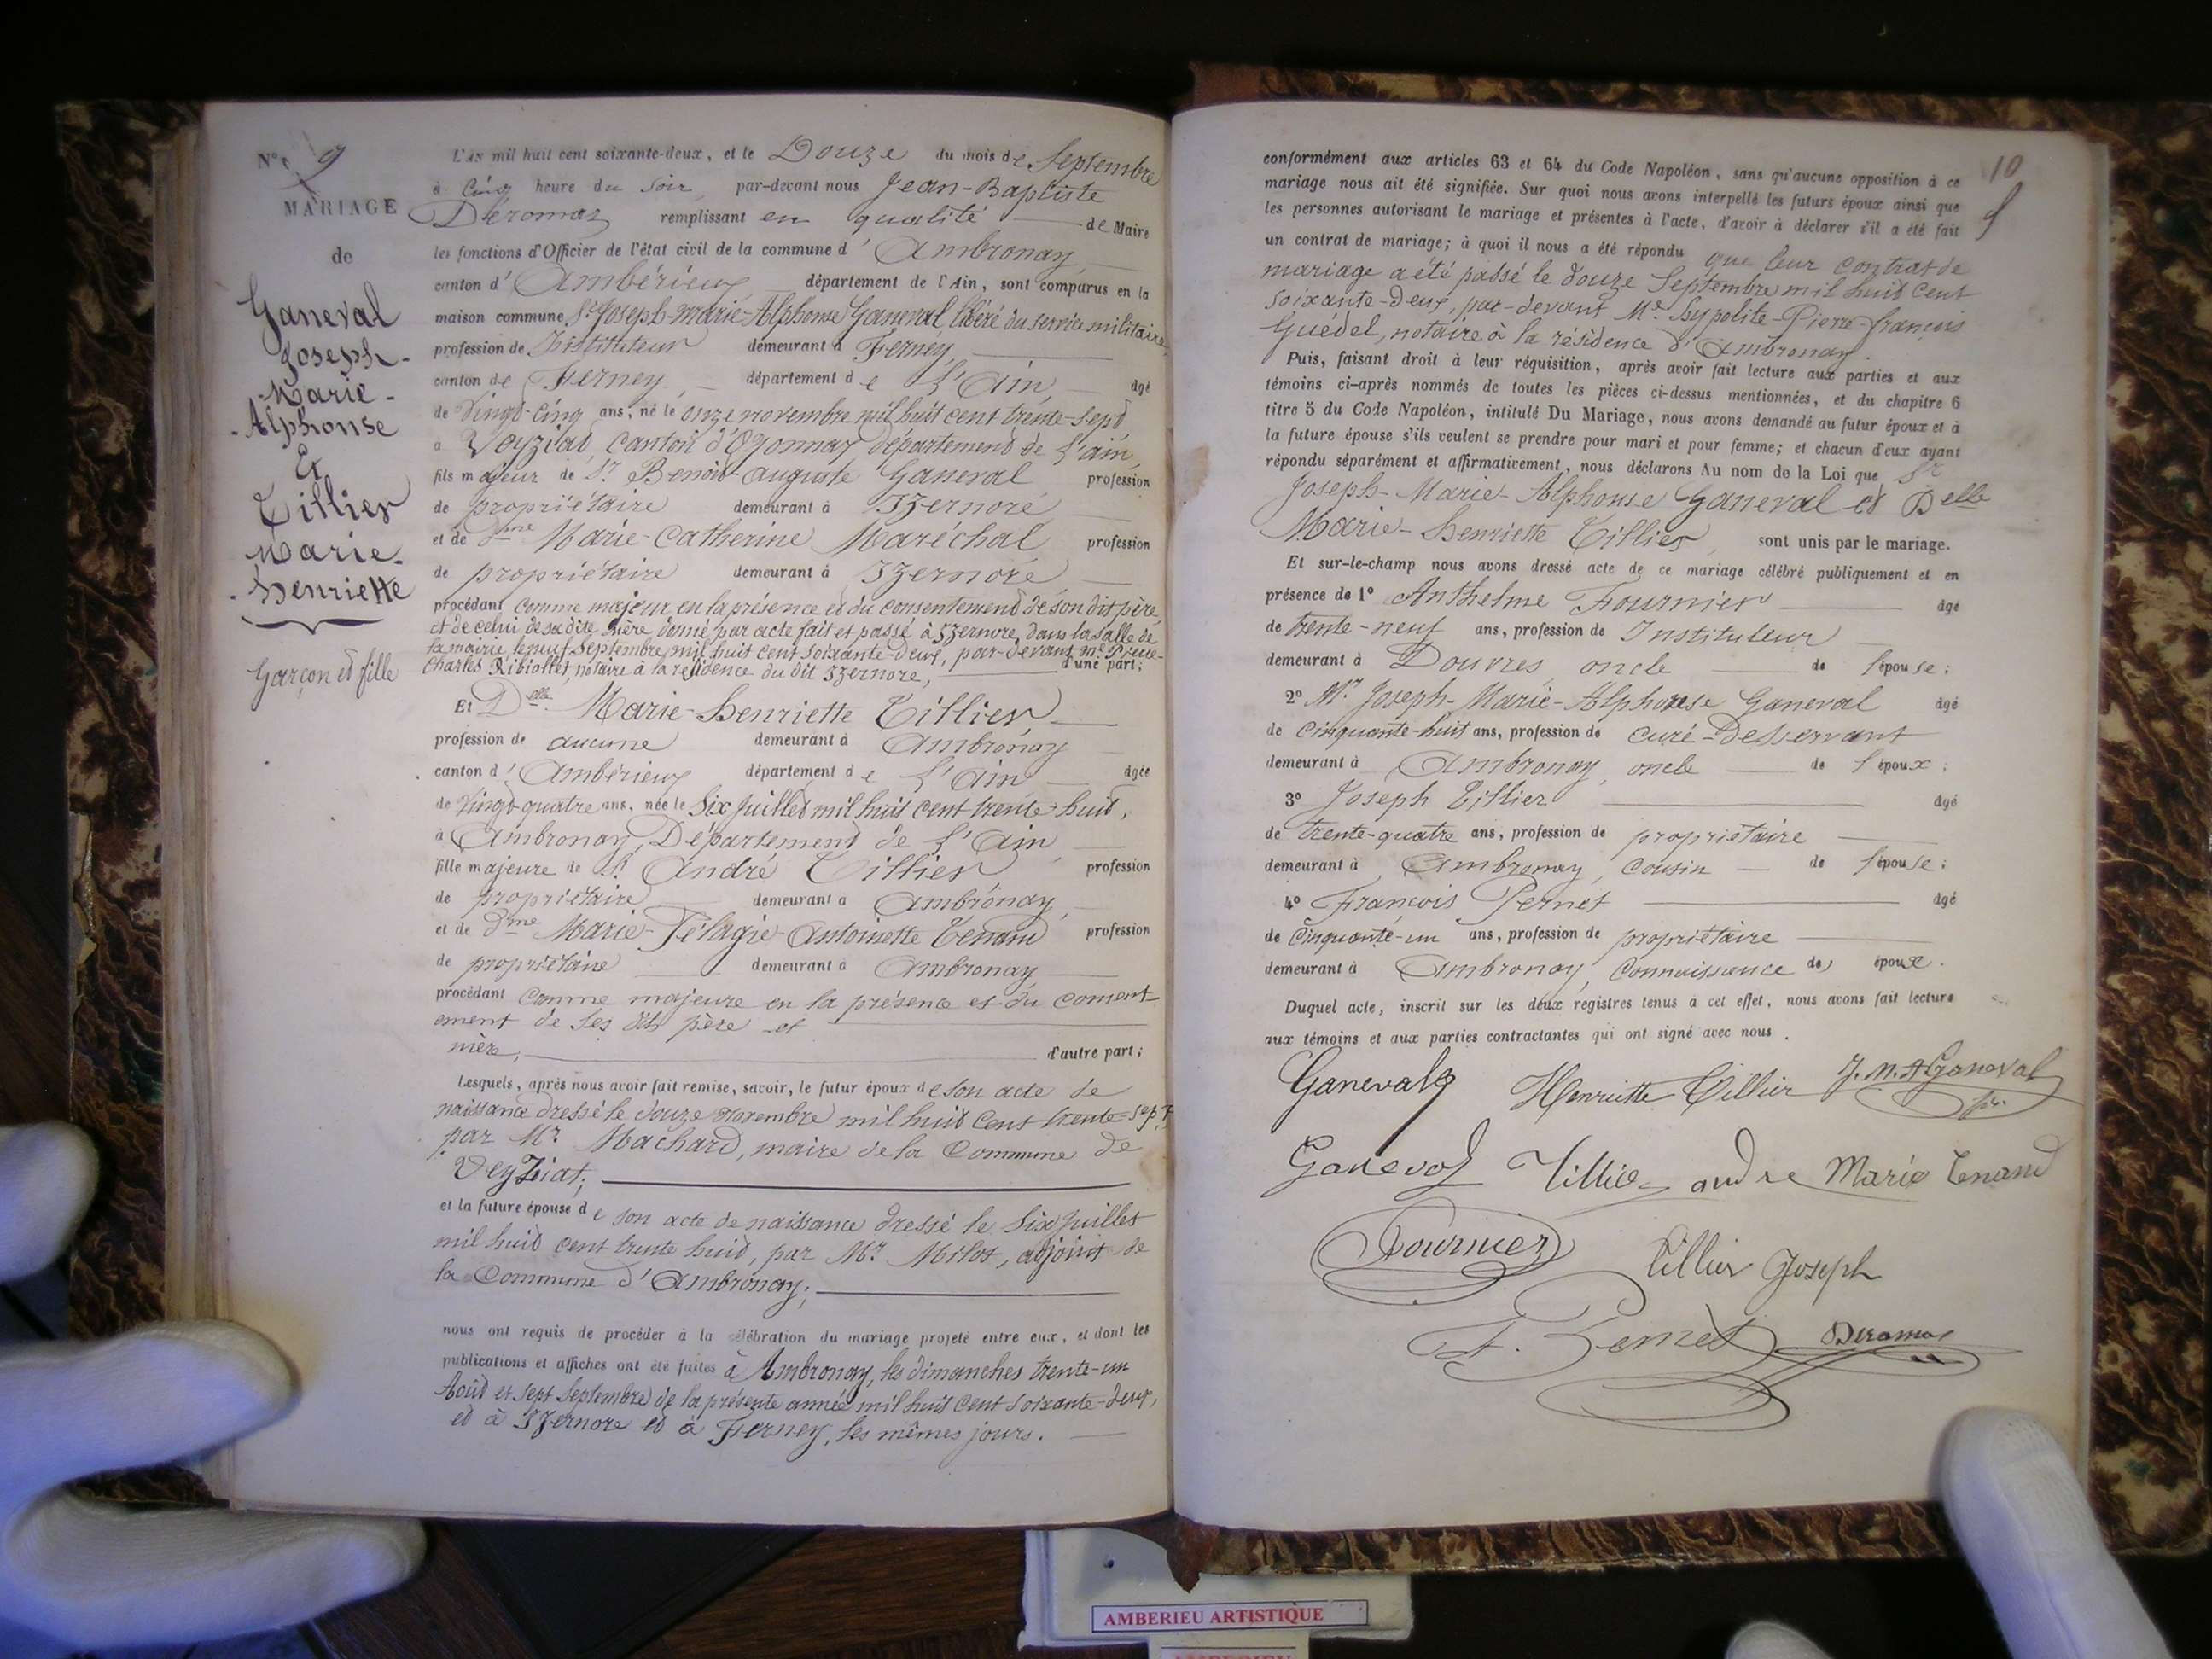 N° 9
MARIAGE
de
Ganeval
Joseph-
Marie-
Alphonse
Et
Tillier
Marie-
Henriette
Garçon et fille
L'AN mil huit cent soixante-deux, et le Douze du mois de Septembre
à Cinq heure du Soir, par-devant nous Jean-Baptiste
Déromas remplissant en qualité de Maire
les fonctions d'Officier de l'état civil de la commune d'Ambronay,
canton d'Ambérieux département de l'Ain, sont comparus en la
maison commune, Sr Joseph-Marie-Alphonse Ganeval, libéré du service militaire,
profession de Instituteur demeurant à Ferney,
canton de Ferney, département de l'Ain, âgé
de Vingt-cinq ans, né le onze novembre mil huit cent trente-sept
à Veyziat, Canton d'Oyonnax, département de l'ain,
fils majeur de Sr Benoit-auguste Ganeval profession
de propriétaire demeurant à Izernore
et de Dme Marie-Catherine Maréchal profession
de propriétaire demeurant à Izernore
procédant comme majeur en la présence et du consentement de son dit père,
et de celui de sa dite mère donné par acte fait et passé à Izernore, dans la salle de
la mairie, le neuf Septembre mil huit cent soixante-deux, par-devant Me
Charles Ribiollet, notaire à la résidence du dit Izernore, d'une part;
Et Delle Marie-Henriette Tillier
profession de aucune demeurant à Ambronay
canton d'Ambérieux département de l'Ain âgée
de Vingt-quatre ans, née le Six Juillet mil huit cent trente-huit,
à Ambronay, Département de l'Ain,
fille majeure de Sr André Tillier profession
de propriétaire demeurant à Ambronay,
et de Dme Marie-Pélagie-Antoinette Tenand profession
de propriétaire demeurant à Ambronay
procédant comme majeure en la présence et du consent-
ement de ses dits père et
mère, d'autre part;
Lesquels, après nous avoir fait remise, savoir, le futur époux de son acte de
naissance dressé le douze novembre mil huit cent trente-sept
par Mr. Machard, maire de la Commune de
Veyziat;
et la future épouse de son acte de naissance dressé le Six Juillet
mil huit cent trente huit, par Mr. Milot, adjoint de
la Commune d'Ambronay;
nous ont requis de procéder à la célébration du mariage projeté entre eux, et dont les
publications et affiches ont été faites à Ambronay, les dimanches trente-un
Août et sept Septembre de la présente année mil huit cent soixante-deux,
et à Izernore et à Ferney, les mêmes jours.
10
conformément aux articles 63 et 64 du Code Napoléon, sans qu'aucune opposition à ce
mariage nous ait été signifiée. Sur quoi nous avons interpellé les futurs époux ainsi que
les personnes autorisant le mariage et présentes à l'acte, d'avoir à déclarer s'il a été fait
un contrat de mariage; à quoi il nous a été répondu que leur contrat de
mariage a été passé le douze Septembre mil huit cent
soixante-deux, par-devant Me. Hypolite-Pierre-françois
Guédel, notaire à la résidence d'Ambronay.
Puis, faisant droit à leur réquisition, après avoir fait lecture aux parties et aux
témoins ci-après nommés de toutes les pièces ci-dessus mentionnées, et du chapitre 6
titre 5 du Code Napoléon, intitulé Du Mariage, nous avons demandé au futur époux et à
la future épouse s'ils veulent se prendre pour mari et pour femme; et chacun d'eux ayant
répondu séparément et affirmativement, nous déclarons Au nom de la Loi que Sr
Joseph-Marie-Alphonse Ganeval et Delle
Marie-Henriette Tillier, sont unis par le mariage.
Et sur-le-champ nous avons dressé acte de ce mariage célébré publiquement et en
présence de 1° Anthelme Fournier âgé
de trente-neuf ans, profession de Instituteur
demeurant à Douvres, oncle de l'épouse;
2° Mr. Joseph-Marie-Alphonse Ganeval âgé
de Cinquante-huit ans, profession de Curé-Desservant
demeurant à Ambronay, oncle de l'époux;
3° Joseph Tillier âgé
de trente-quatre ans, profession de propriétaire
demeurant à Ambronay, Cousin de l'épouse;
4° François Pernet âgé
de Cinquante-un ans, profession de propriétaire
demeurant à Ambronay, Connaissance des époux.
Duquel acte, inscrit sur les deux registres tenus à cet effet, nous avons fait lecture
aux témoins et aux parties contractantes qui ont signé avec nous.
Ganeval Henriette Tillier J. M. A Ganeval
Ganeval Tillier andre Marie Tenand
Fournier Tillier Joseph
F. Pernet Deromas
AMBERIEU ARTISTIQUE
AMBERIEU